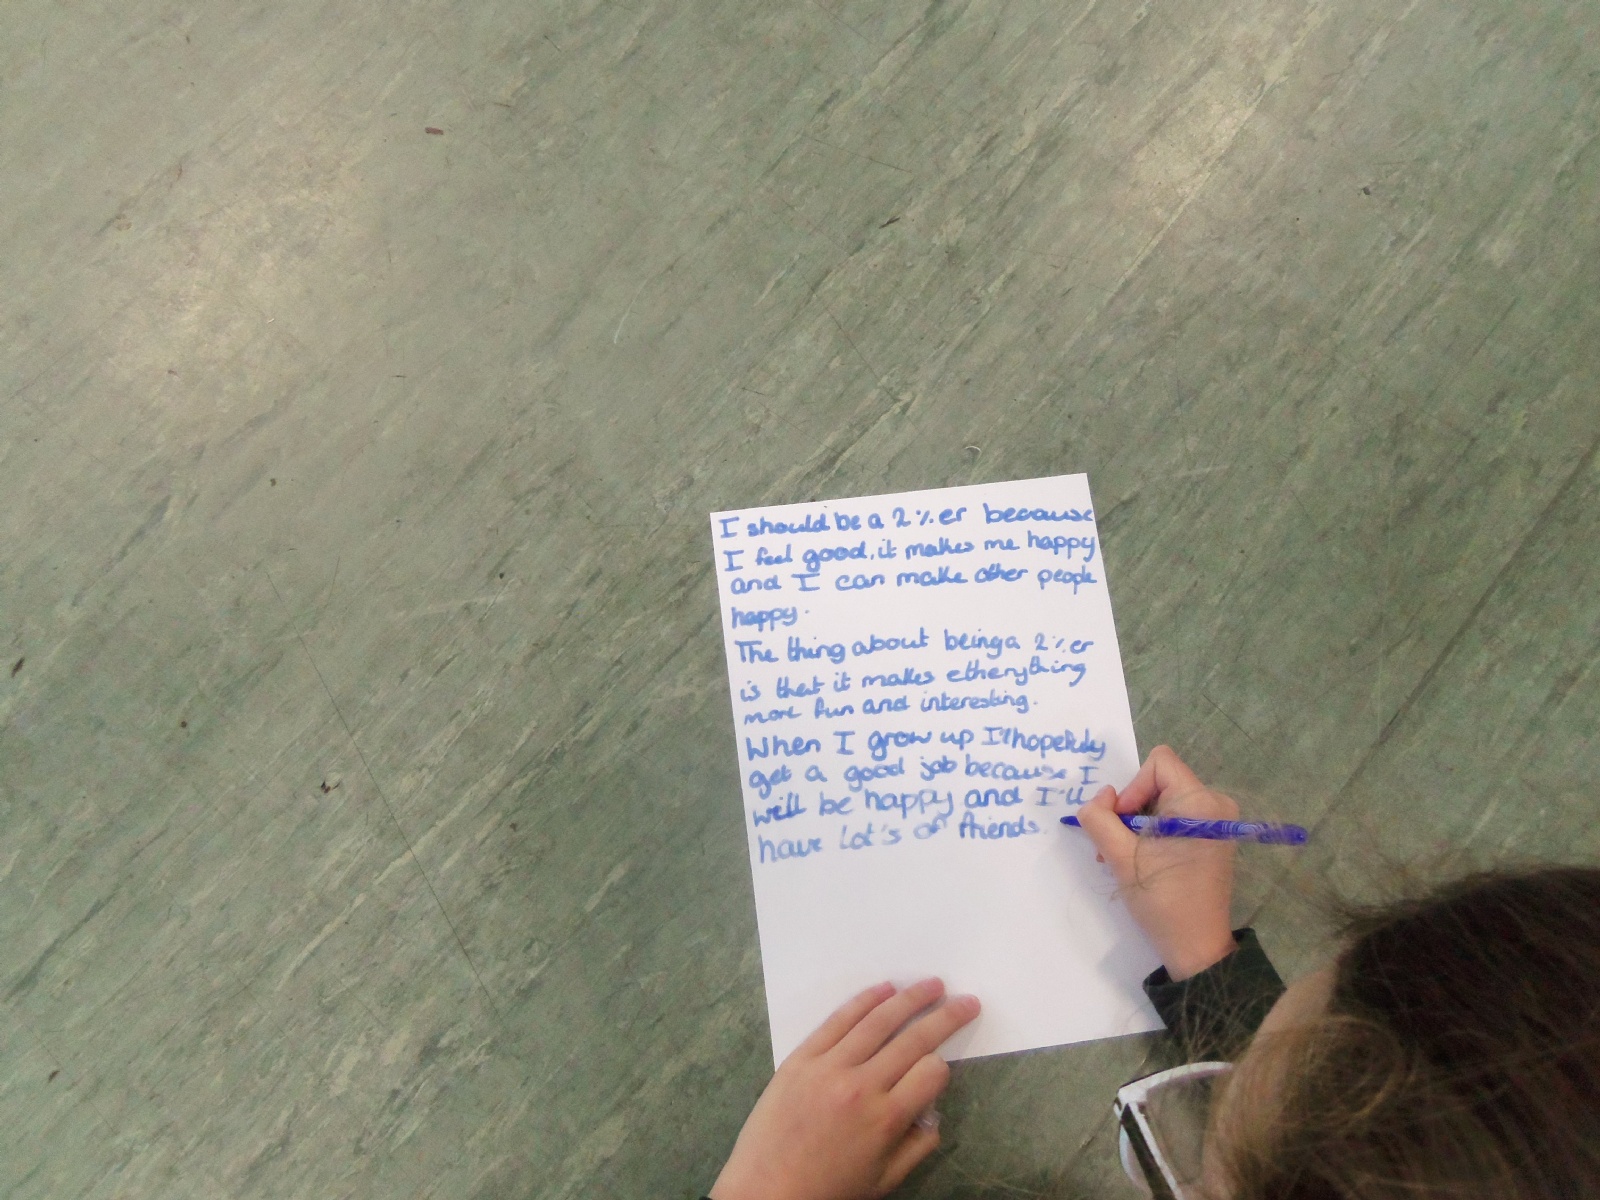 I should be a 2%er because
I feel good, it makes me happy
and I can make other people
happy.
The thing about being a 2%er
is that it makes etherything
more fun and interesting.
When I grow up I'll hopefully
get a good job because I
will be happy and I'll
have lot's of friends.